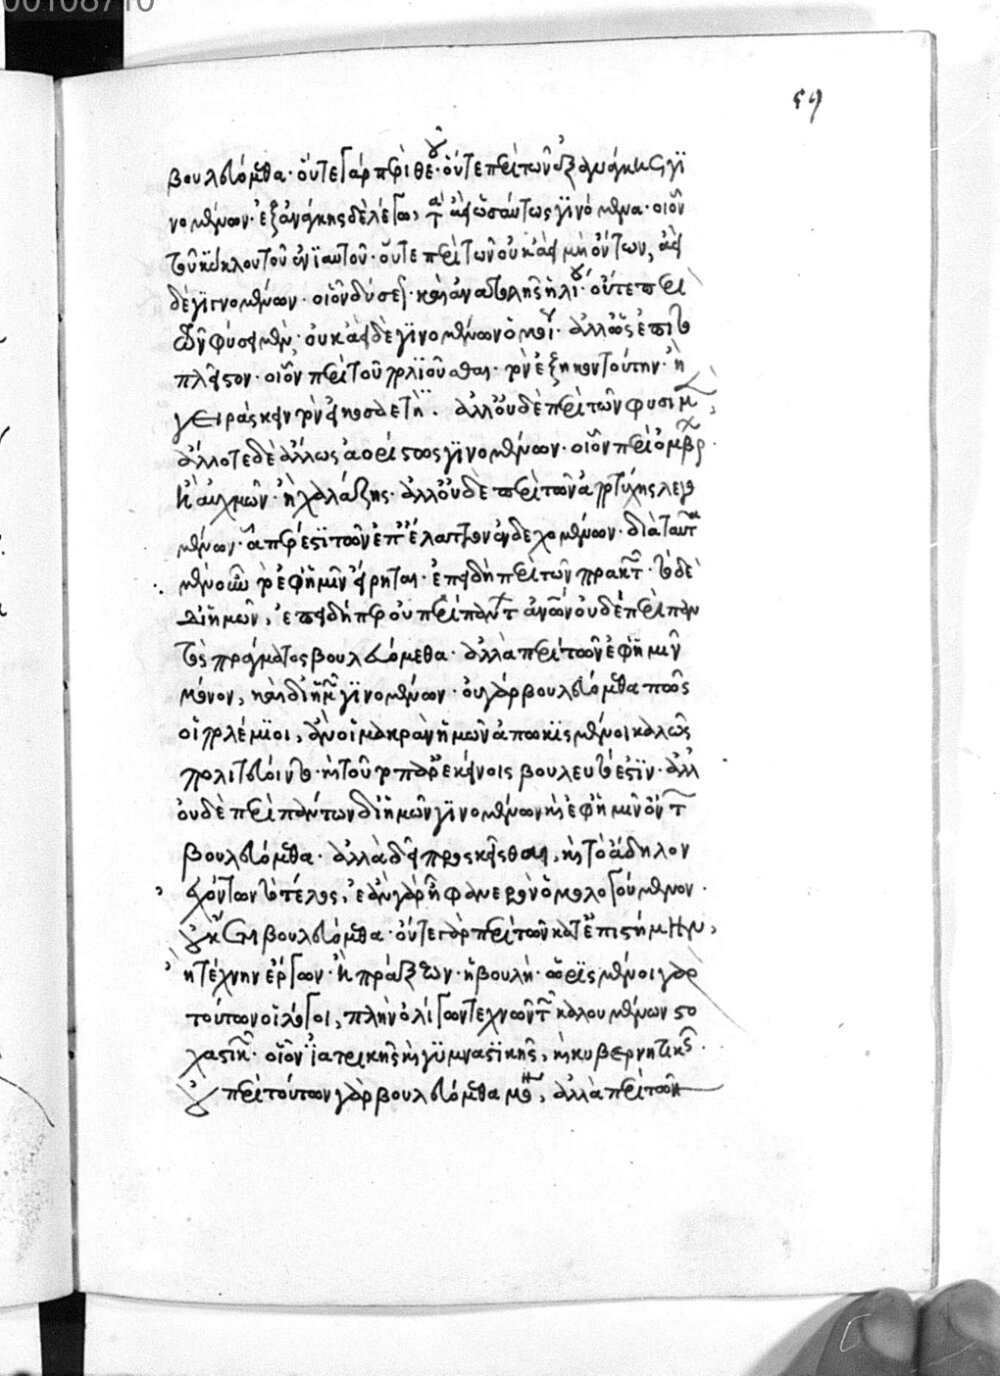 00108710
59
βουλευόμεθα· οὔτε γὰρ περὶ θεοῦ· οὔτε περὶ τῶν ἐξ ἀνάγκης γι
νομένων· ἐξ ἀνάγκης δὲ λέγω, τὰ ἀεὶ ὡσαύτως γινόμενα· οἷον
τοῦ κύκλου τοῦ ἐνιαυτοῦ· οὔτε περὶ τῶν οὐκ ἀεὶ μὴ ὄντων, ἀεὶ
δὲ γιγνομένων· οἷον δύσεως καὶ ἀνατολῆς ἡλίου· οὔτε περὶ
τῶν φύσει μὲν· οὐκ ἀεὶ δὲ γινομένων ὁμοίου· ἀλλ' ὡς ἐπὶ τὸ
πλεῖστον· οἷον περὶ τοῦ πολιοῦσθαι· τὸν ἑξηκοντούτην· ἢ
γενειάσκειν τὸν εἰκοσαετῆ. ἀλλ' οὐδὲ περὶ τῶν φύσει μὲν,
ἄλλοτε δὲ ἄλλως ἀορίστως γινομένων· οἷον περὶ ὄμβρων
ἢ αὐχμῶν· ἢ χαλάζης· ἀλλ' οὐδὲ περὶ τῶν ἀπὸ τύχης λεγο
μένων· ἅπερ ἐστὶ τῶν ἐπ' ἔλαττον ἐνδεχομένων· διὰ ταῦτα
μὲν οὖν τὸ ἐφ' ἡμῖν εἴρηται· ἐπειδὴ περὶ τῶν πρακτῶν· τὸ δὲ
δι' ἡμῶν, ἐπειδήπερ οὐ περὶ πάντων ἀνθρώπων οὐδὲ περὶ παν
τὸς πράγματος βουλευόμεθα· ἀλλὰ περὶ τῶν ἐφ' ἡμῖν
μόνον, καὶ δι' ἡμῶν γινομένων· οὐ γὰρ βουλευόμεθα πῶς
οἱ πολέμιοι, ἢ οἱ μακρὰν ἡμῶν ἀπῳκισμένοι καλῶς
πολιτεύοιντο· καίτοι τοῦτο παρ' ἐκείνοις βουλευτόν ἐστιν· ἀλλ'
οὐδὲ περὶ πάντων δι' ἡμῶν γινομένων καὶ ἐφ' ἡμῖν ὄντων
βουλευόμεθα· ἀλλὰ δεῖ προσκεῖσθαι, καὶ τὸ ἄδηλον
ἐχόντων τὸ τέλος, ἐὰν γὰρ ᾖ φανερὸν ὁμολογούμενον·
οὐκέτι βουλευόμεθα· οὔτε γὰρ περὶ τῶν κατ' ἐπιστήμην,
ἢ τέχνην ἔργων· ἢ πράξεων· ἡ βουλή· ὡρισμένοι γὰρ
τούτων οἱ λόγοι, πλὴν ὀλίγων τεχνῶν τῶν καλουμένων στο
χαστικῶν· οἷον ἰατρικῆς καὶ γυμναστικῆς, καὶ κυβερνητικῆς·
οὐ περὶ τούτων γὰρ βουλευόμεθα μόνον, ἀλλὰ περὶ τῶν